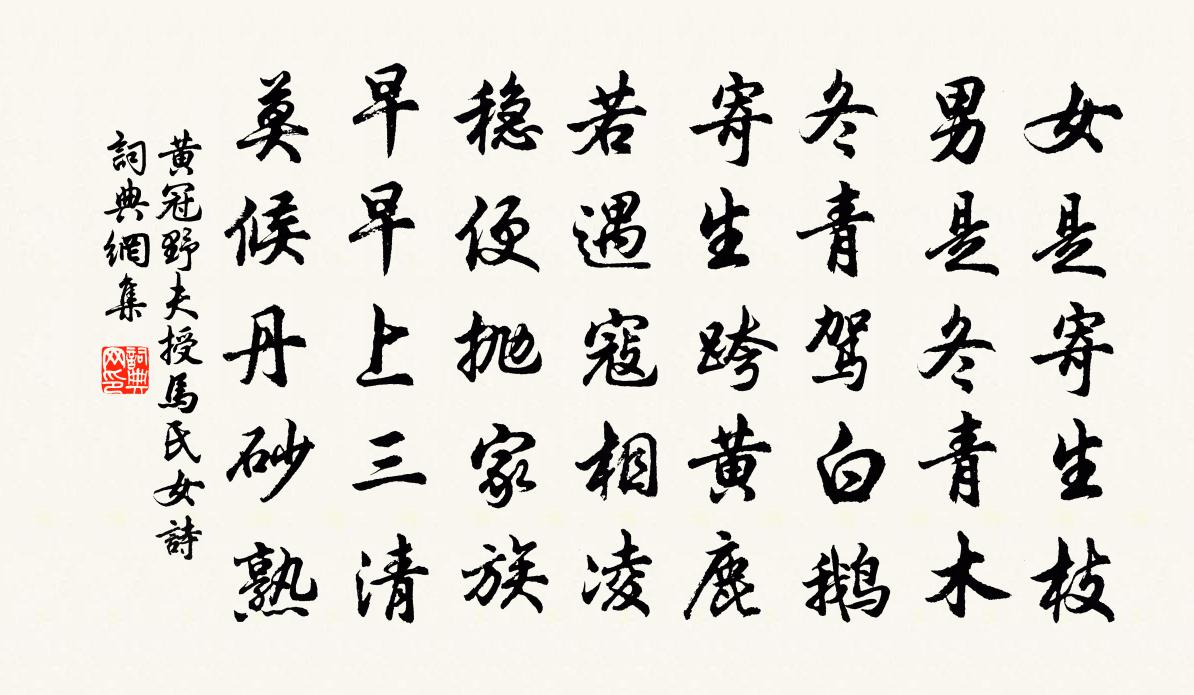 女是寄生枝
男是冬青木
冬青驾白鹅
寄生跨黄鹿
若遇寇相凌
稳便抛家族
早早上三清
莫候丹砂熟
黄冠野夫授馬氏女詩
詞典網集
詞典
网印